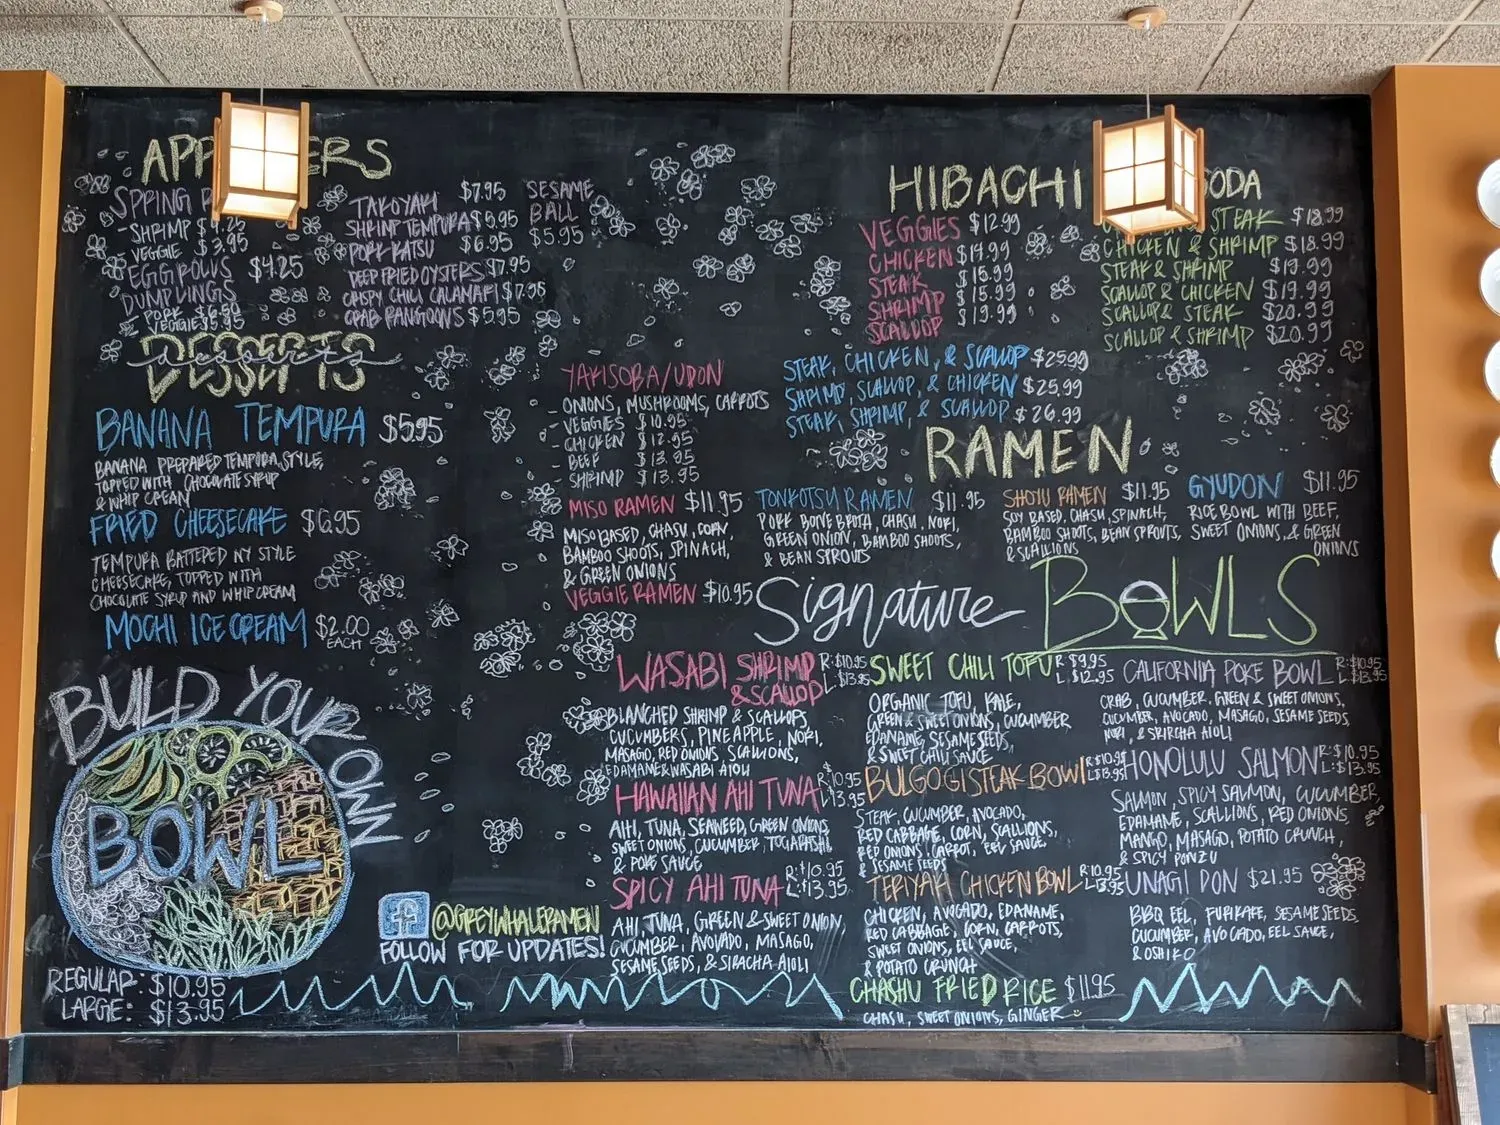 APP ERS
SPRING R
- SHRIMP $4.25
VEGGIE $3.95
EGGROLLS $4.25
DUMPLINGS
PORK $6.50
VEGGIE $5.95
TAKOYAKI $7.95
SHRIMP TEMPURA $5.95
PORK KATSU $6.95
DEEP FRIED OYSTERS $7.95
CRISPY CHILI CALAMARI $7.95
CRAB RANGOONS $5.95
SESAME
BALL
$5.95
DESSERTS
BANANA TEMPURA $5.95
BANANA PREPARED TEMPURA STYLE,
TOPPED WITH CHOCOLATE SYRUP
& WHIP CREAM
FRIED CHEESECAKE $6.95
TEMPURA BATTERED NY STYLE
CHEESECAKE, TOPPED WITH
CHOCOLATE SYRUP AND WHIP CREAM
MOCHI ICE CREAM $2.00
EACH
BUILD YOUR OWN
BOWL
REGULAR: $10.95
LARGE: $13.95
f @GREYWHALERAMEN
FOLLOW FOR UPDATES!
HIBACHI ODA
VEGGIES $12.99
CHICKEN $14.99
STEAK $15.99
SHRIMP $15.99
SCALLOP $19.99
STEAK $18.99
CHICKEN & SHRIMP $18.99
STEAK & SHRIMP $19.99
SCALLOP & CHICKEN $19.99
SCALLOP & STEAK $20.99
SCALLOP & SHRIMP $20.99
STEAK, CHICKEN, & SCALLOP $25.99
SHRIMP, SCALLOP, & CHICKEN $25.99
STEAK, SHRIMP, & SCALLOP $26.99
YAKISOBA/UDON
ONIONS, MUSHROOMS, CARROTS
- VEGGIES $10.95
- CHICKEN $12.95
- BEEF $13.95
- SHRIMP $13.95
RAMEN
MISO RAMEN $11.95
MISO BASED, CHASU, CORN,
BAMBOO SHOOTS, SPINACH,
& GREEN ONIONS
VEGGIE RAMEN $10.95
TONKOTSU RAMEN $11.95
PORK BONE BROTH, CHASU, NORI,
GREEN ONION, BAMBOO SHOOTS,
& BEAN SPROUTS
SHOYU RAMEN $11.95
SOY BASED, CHASU, SPINACH,
BAMBOO SHOOTS, BEAN SPROUTS,
& SCALLIONS
GYUDON $11.95
RICE BOWL WITH BEEF,
SWEET ONIONS, & GREEN
ONIONS
Signature BOWLS
WASABI SHRIMP R:$10.95
& SCALLOP L:$13.95
BLANCHED SHRIMP & SCALLOPS,
CUCUMBERS, PINEAPPLE, NORI,
MASAGO, RED ONIONS, SCALLIONS,
EDAMAME & WASABI AIOLI
HAWAIIAN AHI TUNA R:$10.95
L:$13.95
AHI, TUNA, SEAWEED, GREEN ONIONS
SWEET ONIONS, CUCUMBER, TOGARASHI
& POKE SAUCE
SPICY AHI TUNA R:$10.95
L:$13.95
AHI, TUNA, GREEN & SWEET ONION,
CUCUMBER, AVOVADO, MASAGO,
SESAME SEEDS, & SIRACHA AIOLI
SWEET CHILI TOFU R $9.95
L $12.95
ORGANIC TOFU, KALE,
GREEN & SWEET ONIONS, CUCUMBER
EDANAME, SESAME SEEDS,
& SWEET CHILI SAUCE
BULGOGI STEAK BOWL R:$10.95
L:$13.95
STEAK, CUCUMBER, AVOCADO,
RED CABBAGE, CORN, SCALLIONS,
RED ONIONS, CARROT, EEL SAUCE,
& SESAME SEEDS
TERIYAKI CHICKEN BOWL R:$10.95
L:$13.95
CHICKEN, AVOCADO, EDANAME,
RED CABBAGE, CORN, CARROTS,
SWEET ONIONS, EEL SAUCE,
& POTATO CRUNCH
CHASHU FRIED RICE $11.95
CHASU, SWEET ONIONS, GINGER
CALIFORNIA POKE BOWL R:$10.95
L:$13.95
CRAB, CUCUMBER, GREEN & SWEET ONIONS,
CUCUMBER, AVOCADO, MASAGO, SESAME SEEDS,
NORI, & SRIRCHA AIOLI
HONOLULU SALMON R:$10.95
L:$13.95
SALMON, SPICY SALMON, CUCUMBER,
EDAMAME, SCALLIONS, RED ONIONS,
MANGO, MASAGO, POTATO CRUNCH,
& SPICY PONZU
UNAGI DON $21.95
BBQ EEL, FURIKAKE, SESAME SEEDS,
CUCUMBER, AVOCADO, EEL SAUCE,
& OSHIKO